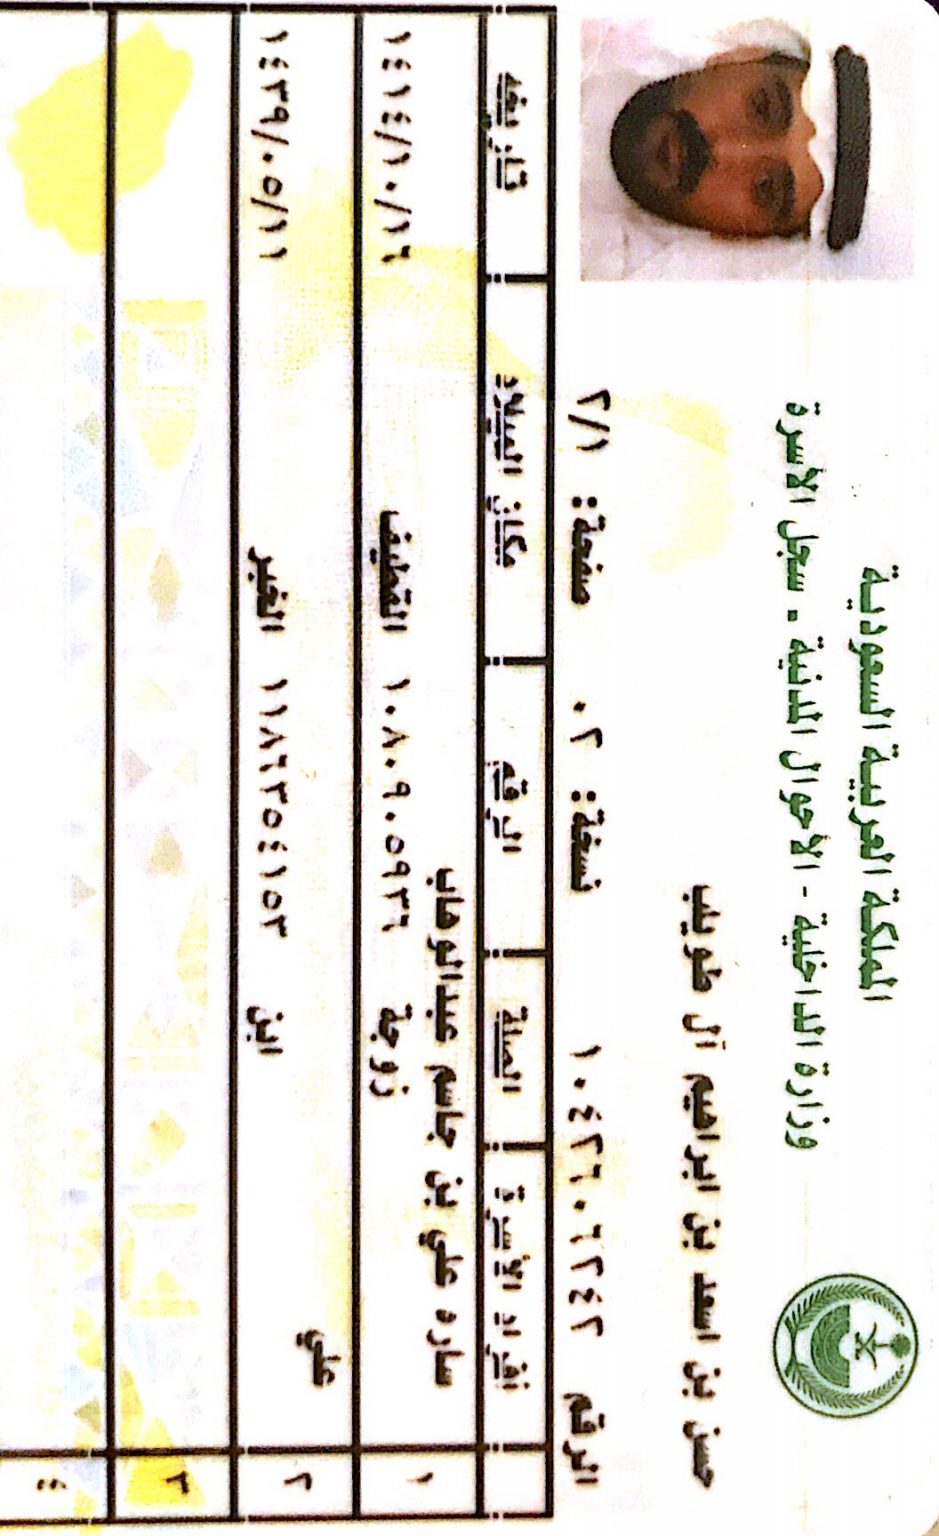 المملكة العربية السعودية
وزارة الداخلية - الأحوال المدنية - سجل الأسرة
حسن بن اسعد بن ابراهيم آل طويلب
الرقم ١٠٤٢٦٠٦٢٤٢ نسخة: ٠٢ صفحة: ٢/١
افراد الأسرة الصلة الرقم مكان الميلاد تاريخه
١ ساره علي بن جاسم عبدالوهاب زوجة ١٠٨٠٩٠٥٩٣٦ القطيف ١٤١٤/١٠/١٦
٢ علي ابن ١١٨٦٣٥٤١٥٣ الخبر ١٤٣٩/٠٥/١١
٣
٤